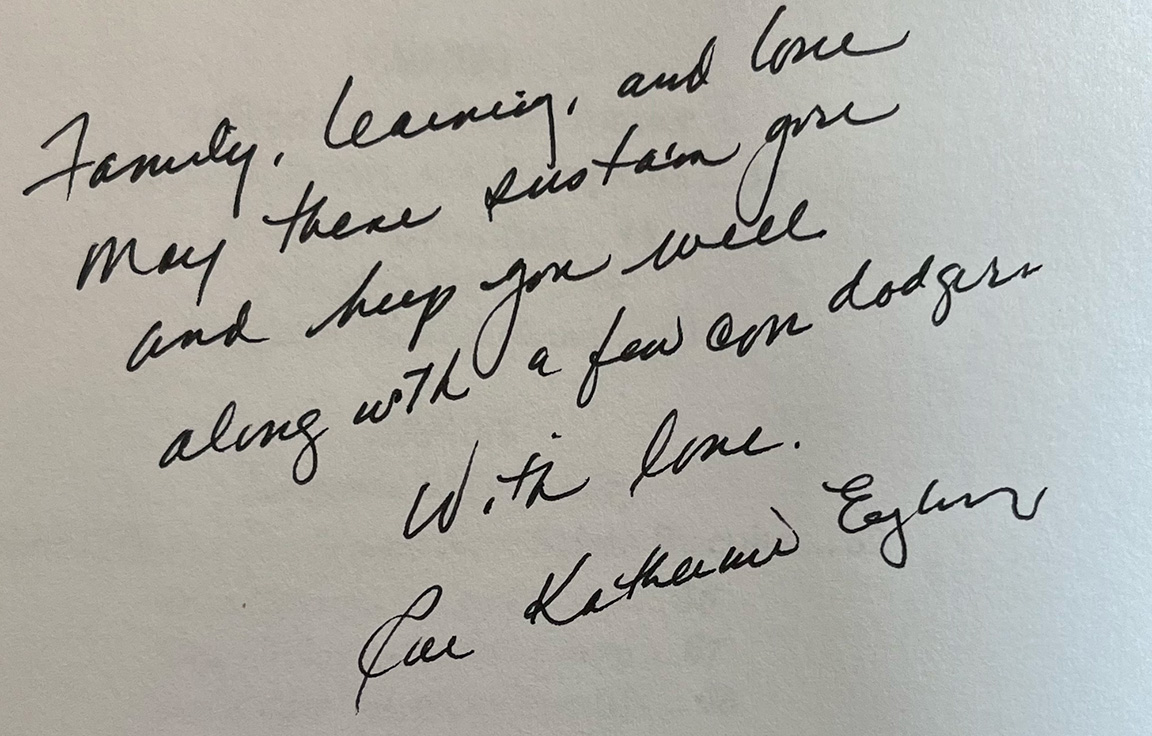 Family, learning, and love
May these sustain you
and keep you well
along with a few corn dodgers
With love.
Rae Katherine